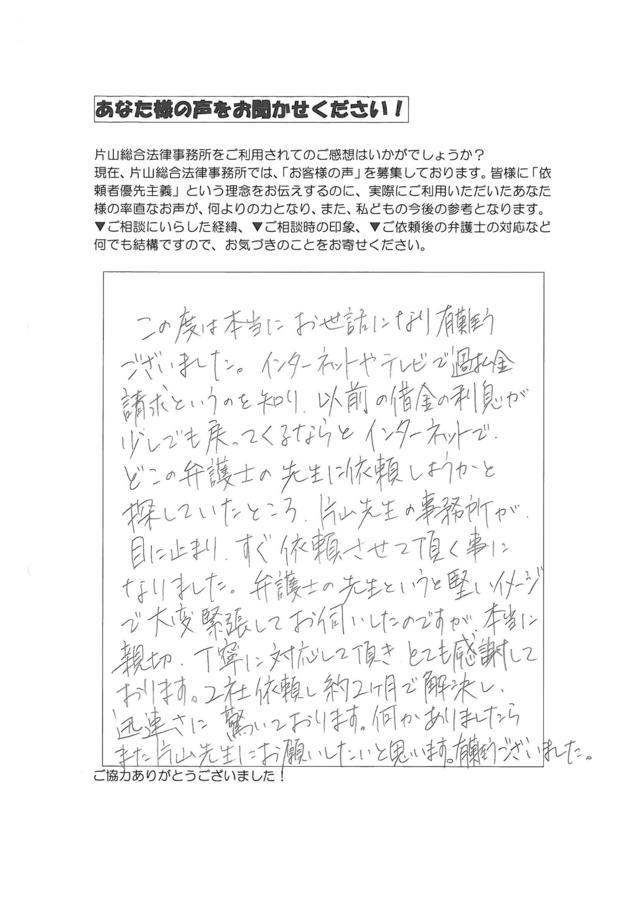 あなた様の声をお聞かせください！
片山総合法律事務所をご利用されてのご感想はいかがでしょうか？
現在、片山総合法律事務所では、「お客様の声」を募集しております。皆様に「依
頼者優先主義」という理念をお伝えするのに、実際にご利用いただいたあなた
様の率直なお声が、何よりの力となり、また、私どもの今後の参考となります。
▼ご相談にいらした経緯、▼ご相談時の印象、▼ご依頼後の弁護士の対応など
何でも結構ですので、お気づきのことをお寄せください。
この度は本当にお世話になり有難う
ございました。インターネットやテレビで過払金
請求というのを知り、以前の借金の利息が
少しでも戻ってくるならとインターネットで、
どこの弁護士の先生に依頼しようかと
探していたところ、片山先生の事務所が、
目に止まり、すぐ依頼させて頂く事に
なりました。弁護士の先生というと堅いイメージ
で大変緊張してお伺いしたのですが、本当に
親切、丁寧に対応して頂きとても感謝して
おります。2社依頼し約2ヶ月で解決し、
迅速さに驚いております。何かありましたら
また片山先生にお願いしたいと思います。有難うございました。
ご協力ありがとうございました！